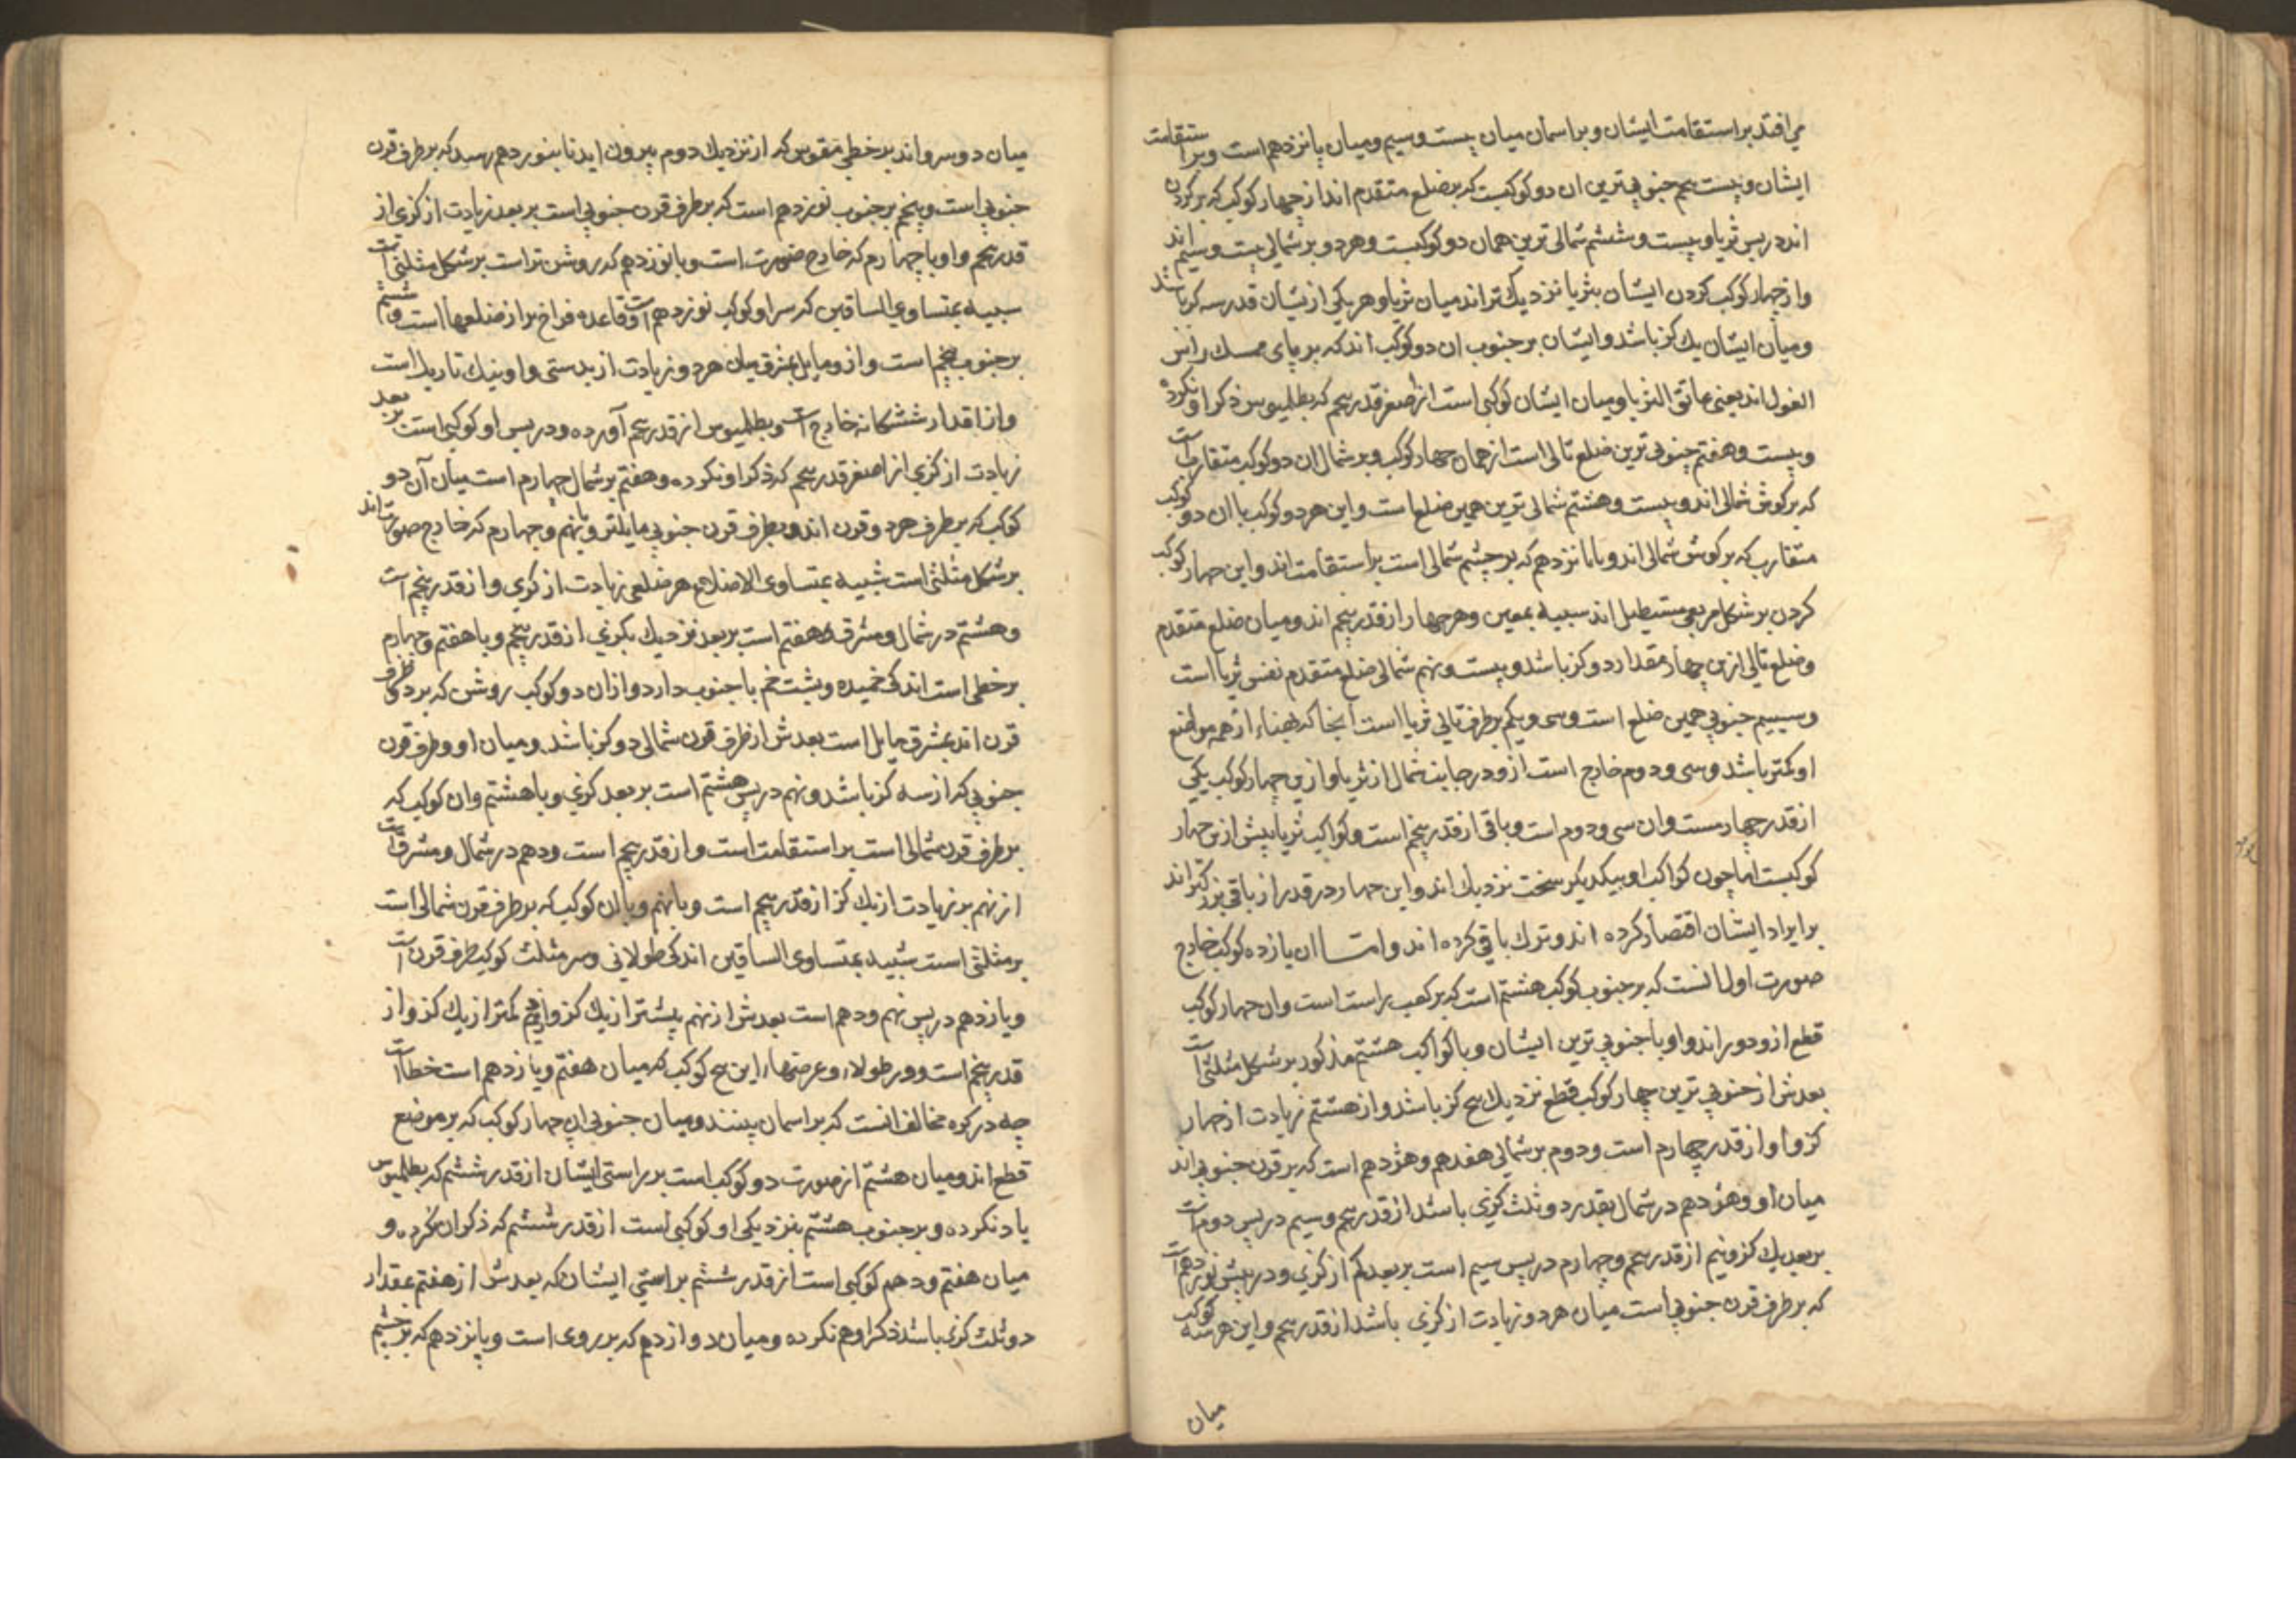 می افتد بر استقامت ایشان و بر اسمان میان بیست وسیم ومیان پانزدهم است وبر استقامت
ایشان و بیست پنجم جنوبی‌ترین ان دو کوکبست که بر ضلع متقدم اند از چهار کوکب که بر کردن
اند در پس ثریا و بیست و ششم شمالی ترین همان دو کوکبست وهر دو بر شمالی بیست وسیم اند
واز چهار کوکب کردن ایشان بثریا نزدیک تر اند میان ثریا وهر یکی ازیشان قدر سه کز باشد
ومیان ایشان یک کز باشد وایشان بر جنوب ان دو کوکب اند که بر پای ممسک راس
الغول اند یعنی عاتق الثریا ومیان ایشان کوکبی است از اصغر قدر پنجم که بطلمیوس ذکر او نکرده
و بیست وهفتم جنوبی ترین ضلع تالی است از همان چهار کوکب وبر شمال ان دو کوکب متقارب است
که بر کوش شمالی اند و بیست وهشتم شمالی ترین همین ضلع است واین هر دو کوکب با ان دو کوکب
متقارب که بر کوش شمالی اند وبا پانزدهم که بر چشم شمالی است بر استقامت اند واین چهار کوکب
کردن بر شکل مربعی مستطیل اند شبیه بمعین وهر چهار از قدر پنجم اند ومیان ضلع متقدم
وضلع تالی ازین چهار مقدار دو کز باشد و بیست ونهم شمالی ضلع متقدم نفس ثریا است
وسییم جنوبی همین ضلع است وسی ویکم بر طرف تالی ثریا است آنجا که پهناء از همه مواضع
او کمتر باشد وسی ودوم خارج است ازو در جانب شمال از ثریا وازین چهار کوکب یکی
از قدر چهارمست وان سی ودوم است وباقی از قدر پنجم است وکواکب ثریا بیش ازین چهار
کوکبست اما چون کواکب او بیکدیکر سخت نزدیک اند واین چهار در قدر از باقی بزرکتر اند
بر ایراد ایشان اقتصار کرده اند وترک باقی کرده اند وامـــا ان یازده کوکب خارج
صورت اول انست که بر جنوب کوکب هشتم است که بر کعب راست است وان چهار کوکب
قطع ازو دور اند واو با جنوبی ترین ایشان وبا کواکب هشتم مذکور بر شکل مثلثی است
بعدش از جنوبی ترین چهار کوکب قطع نزدیک پنج کز باشد واز هشتم زیادت از چهار
کز واو از قدر چهارم است ودوم بر شمالی هفدهم وهژدهم است که بر قرن جنوبی اند
میان او وهژدهم در شمال بقدر دو ثلث کزی باشد از قدر پنجم وسیم در پس دوم است
بر بعد یک کز ونیم از قدر پنجم وچهارم در پس سیم است بر بعد کم از کزی ودر پیش نوزدهم است
که بر طرف قرن جنوبی است میان هر دو زیادت از کزی باشد از قدر پنجم واین هر سه کوکب
میان
میان دو سرو اند بر خطی مقوس که از نزدیک دوم بیرون اید تا بنوزدهم رسد که بر طرف قرن
جنوبی است وپنجم بر جنوب نوزدهم است که بر طرف قرن جنوبی است بر بعد زیادت از کزی از
قدر پنجم واو با چهارم که خارج صورت است وبا نوزدهم که روشن تر است بر شکل مثلثی است
سبیه بمتساوی الساقین که سر او کوکب نوزدهم است وقاعده فراخ تر از ضلعها است وششم
بر جنوب پنجم است وازو مایل بشرق میان هر دو زیادت از بدستی واو نیک تاریک است
واز اقدار ششکانه خارج است وبطلمیوس از قدر پنجم آورده ودر پس او کوکبی است بر بعد
زیادت از کزی از اصغر قدر پنجم که ذکر او نکرده وهفتم بر شمال چهارم است میان آن دو
کوکب که بر طرف هر دو قرن اند وبطرف قرن جنوبی مایلتر وبا پنجم وچهارم که خارج صورت اند
بر شکل مثلثی است شبیه بمتساوی الاضلاع هر ضلعی زیادت از کزی واز قدر پنجم است
وهشتم در شمال ومشرق هفتم است بر بعد نزدیک بکزی از قدر پنجم وبا هفتم وچهارم
بر خطی است اندکی خمیده وپشت خم با جنوب دارد وازان دو کوکب روشن که بر دو طرف
قرن اند بمشرق مایل است بعدش از طرف قرن شمالی دو کز باشد ومیان او وطرف قرن
جنوبی کم از سه کز باشد ونهم در پس هشتم است بر بعد کزی وبا هشتم وان کوکب که
بر طرف قرن شمالی است بر استقامت است واز قدر پنجم است ودهم در شمال ومشرق است
از نهم بر زیادت از یک کز از قدر پنجم است وبا نهم وبا ان کوکب که بر طرف قرن شمالی است
بر مثلثی است شبیه بمتساوی الساقین اندکی طولانی وسر مثلث کوکب طرف قرن است
ویازدهم در پس نهم ودهم است بعدش از نهم بیشتر از یک کز واز دهم کمتر از یک کز واز
قدر پنجم است ودر طولاء وعرضهاء این پنج کوکب که میان هفتم ویازدهم است خطا است
چه در کره مخالف انست که بر اسمان بینند ومیان جنوبی این چهار کوکب که بر موضع
قطع اند ومیان هشتم از صورت دو کوکب است بر راستی ایشان از قدر ششم که بطلمیوس
یاد نکرده وبر جنوب هشتم بنزدیکی او کوکبی است از قدر ششم که ذکر ان نکرده و
میان هفتم ودهم کوکبی است از قدر ششم بر راستی ایشان که بعدش از هفتم بمقدار
دو ثلث کزی باشد ذکر او هم نکرده ومیان دوازدهم که بر روی است وپانزدهم که بر چشم